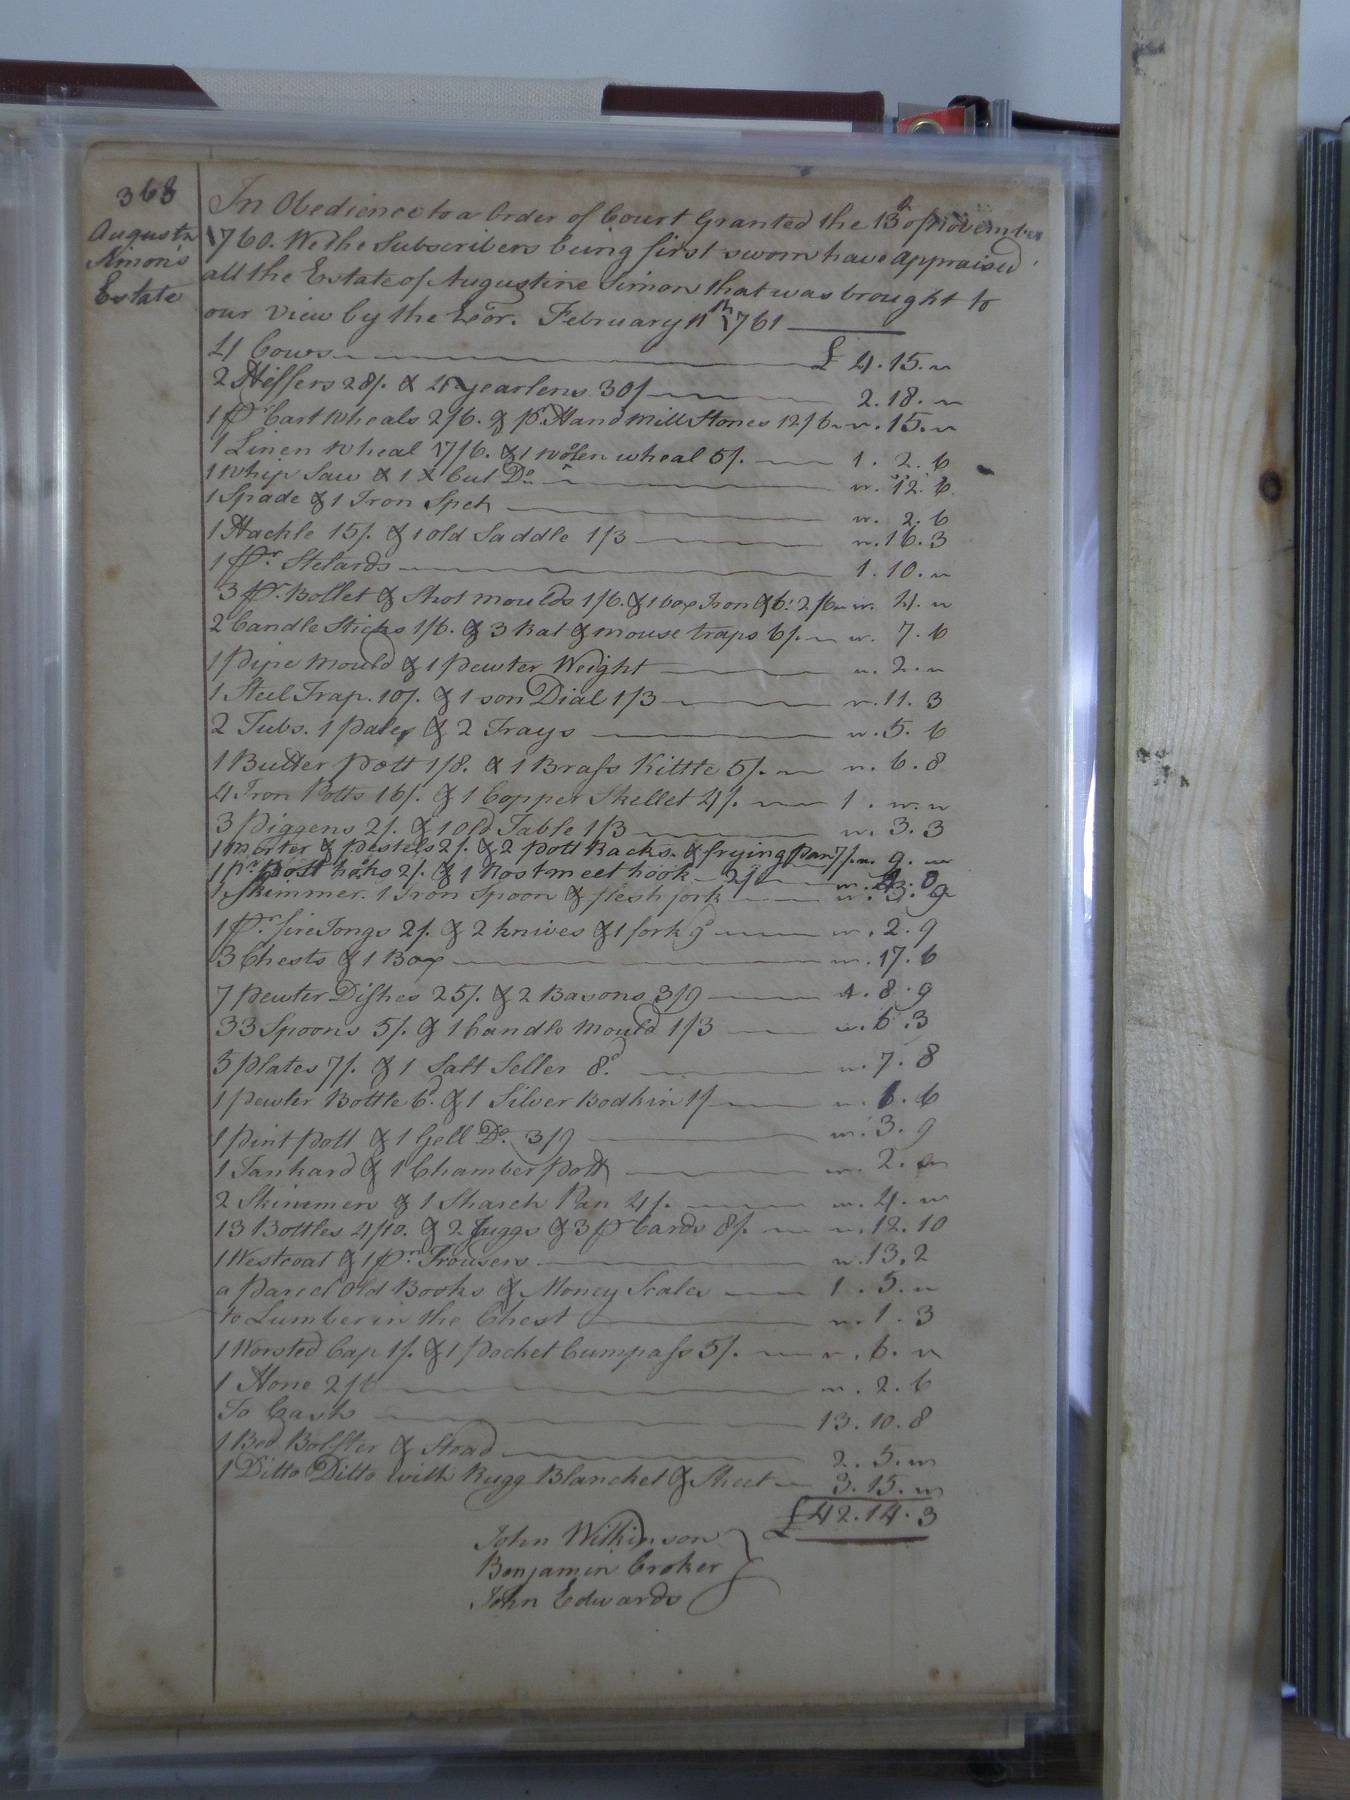 368
Augustn
Simon's
Estate
In Obedience to a Order of Court Granted the 13th of November
1760. We the Subscribers being first sworn have appraised
all the Estate of Augustine Simon that was brought to
our view by the Exor. February 11th 1761
4 Cows £ 4.15."
2 Heffers 28/. & 4 yearlens 30/ 2.18."
1 pr Cart wheals 2/6. & pr. Hand mill Stones 12/6 ".15."
1 Linen wheal 17/6. & 1 wolen wheal 5/. 1.2.6
1 whip Saw & 1 X Cut Do. ".12.6
1 Spade & 1 Iron Spet ".2.6
1 Hackle 15/. & 1 old Saddle 1/3 ".16.3
1 pr Stelards 1.10."
3 pr. Bollet & Shot moulds 1/6. & 1 box Iron &c: 2/6 ".4."
2 Candle Sticks 1/6. & 3 Rat & mouse traps 6/. ".7.6
1 pipe mould & 1 pewter Weight ".2."
1 Steel Trap. 10/. & 1 son Dial 1/3 ".11.3
2 Tubs. 1 pale & 2 Trays ".5.6
1 Butter pott 1/8. & 1 Brass Kittle 5/. ".6.8
4 Iron Potts 16/. & 1 Copper Skellet 4/. 1.".".
3 piggens 2/. & 1 old Table 1/3 ".3.3
1 morter & pestels 2/. & 2 pott Racks. & frying pan 7/. ".9."
1 pr. pott hoks 2/. & 1 Rostmeet hook 2/
1 Skimmer. 1 Iron Spoon & flesh fork ".3.9
1 pr. fire Tongs 2/. & 2 knives & 1 fork 9d ".2.9
3 Chests & 1 Box ".17.6
7 pewter Dishes 25/. & 2 Basons 3/9 1.8.9
33 Spoons 5/. & 1 Candle mould 1/3 ".6.3
5 plates 7/. & 1 Salt Seller 8d. ".7.8
1 pewter Bottle 6d. & 1 Silver Bodkin 1/ ".1.6
1 pint pott & 1 Gell Do. 3/9 ".3.9
1 Tankard & 1 Chamber pott ".2."
2 Skimmers & 1 Sharch Pan 4/. ".4."
13 Bottles 4/10. & 2 Juggs & 3 pr Cards 8/. ".12.10
1 Westcoat & 1 pr. Trousers ".13.2
a parcel Old Books & Money Scales 1.5."
to Lumber in the Chest ".1.3
1 Worsted Cap 1/. & 1 pocket Cumpass 5/. ".6."
1 Hone 2/6 ".2.6
To Cash 13.10.8
1 Bed Bolster & Stead 2.5."
1 Ditto Ditto with Rugg Blancket & Sheet 3.15."
£42.14.3
John Wilkinson
Benjamin Croker
John Edwards